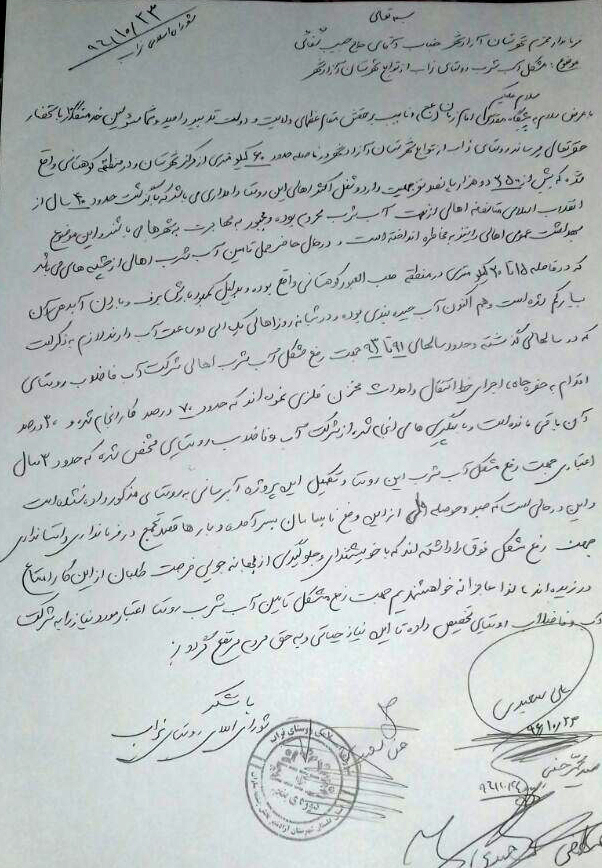 بسمه تعالی
۹۶/۱۰/۲۳
شورای اسلامی نراب
فرماندار محترم شهرستان آزادشهر جناب آقای حاج حبیب
موضوع: مشکل آب شرب روستای نراب از توابع شهرستان آزادشهر
سلام علیکم
با عرض سلام به پیشگاه مقدس امام زمان (عج) و نایب برحقش مقام عظمای ولایت و دولت تدبیر و امید و تمامی خدمتگزار با استحضار
حضرتعالی میرساند روستای نراب از توابع شهرستان آزادشهر در فاصله حدود ۶۰ کیلومتری از مرکز شهرستان و در منطقه کوهستانی واقع
شده که بیش از ۲۵۰۰ دو هزار پانصد نفر جمعیت دارد و شغل اکثر اهالی این روستا دامداری می باشد که با گذشت حدود ۴۰ سال از
انقلاب اسلامی متاسفانه اهالی از نعمت آب شرب محروم بوده و مجبور به مهاجرت به شهرها می باشند و این موضوع
بهداشت عمومی اهالی را نیز به مخاطره انداخته است و در حال حاضر محل تامین آب شرب اهالی از چشمه های می باشد
که در فاصله ۱۵ تا ۲۰ کیلومتری در منطقه صعب العبور کوهستانی واقع بوده و بدلیل کمبود بارش برف و باران آبدهی آن
بسیار کم شده است و هم اکنون آب جیره بندی بوده و در شبانه روز اهالی یک الی دو ساعت آب دارند لازم به ذکر است
که در سالهای گذشته و حدود سالهای ۹۱ تا ۹۳ جهت رفع مشکل آب شرب اهالی شرکت آب فاضلاب روستای
اقدام به حفر چاه، اجرای خط انتقال و احداث مخزن فلزی نموده اند که حدود ۷۰ درصد کار انجام شده و ۳۰ درصد
آن باقی مانده است و با پیگیری های انجام شده از شرکت آب و فاضلاب روستایی مشخص شده که حدود ۳ سال
اعتباری جهت رفع مشکل آب شرب این روستا و تکمیل این پروژه آبرسانی به روستای مذکور داده نشده است
و این در حالی است که صبر و حوصله از این وضع نابسامان بسر آمده و بارها قصد تجمع در فرمانداری و استانداری
جهت رفع مشکل فوق را داشته اند که با خویشتنداری و جلوگیری از بهانه جویی فرصت طلبان از این کار امتناع
ورزیده اند لذا عاجزانه خواهشمندیم جهت رفع مشکل تامین آب شرب روستا اعتبار مورد نیاز را به شرکت
و فاضلاب روستایی تخصیص داده تا این نیاز حیاتی و به حق مردم مرتفع گردد
با تشکر
شورای اسلامی روستای نراب
علی سعیدی
۹۶/۱۰/۲۳